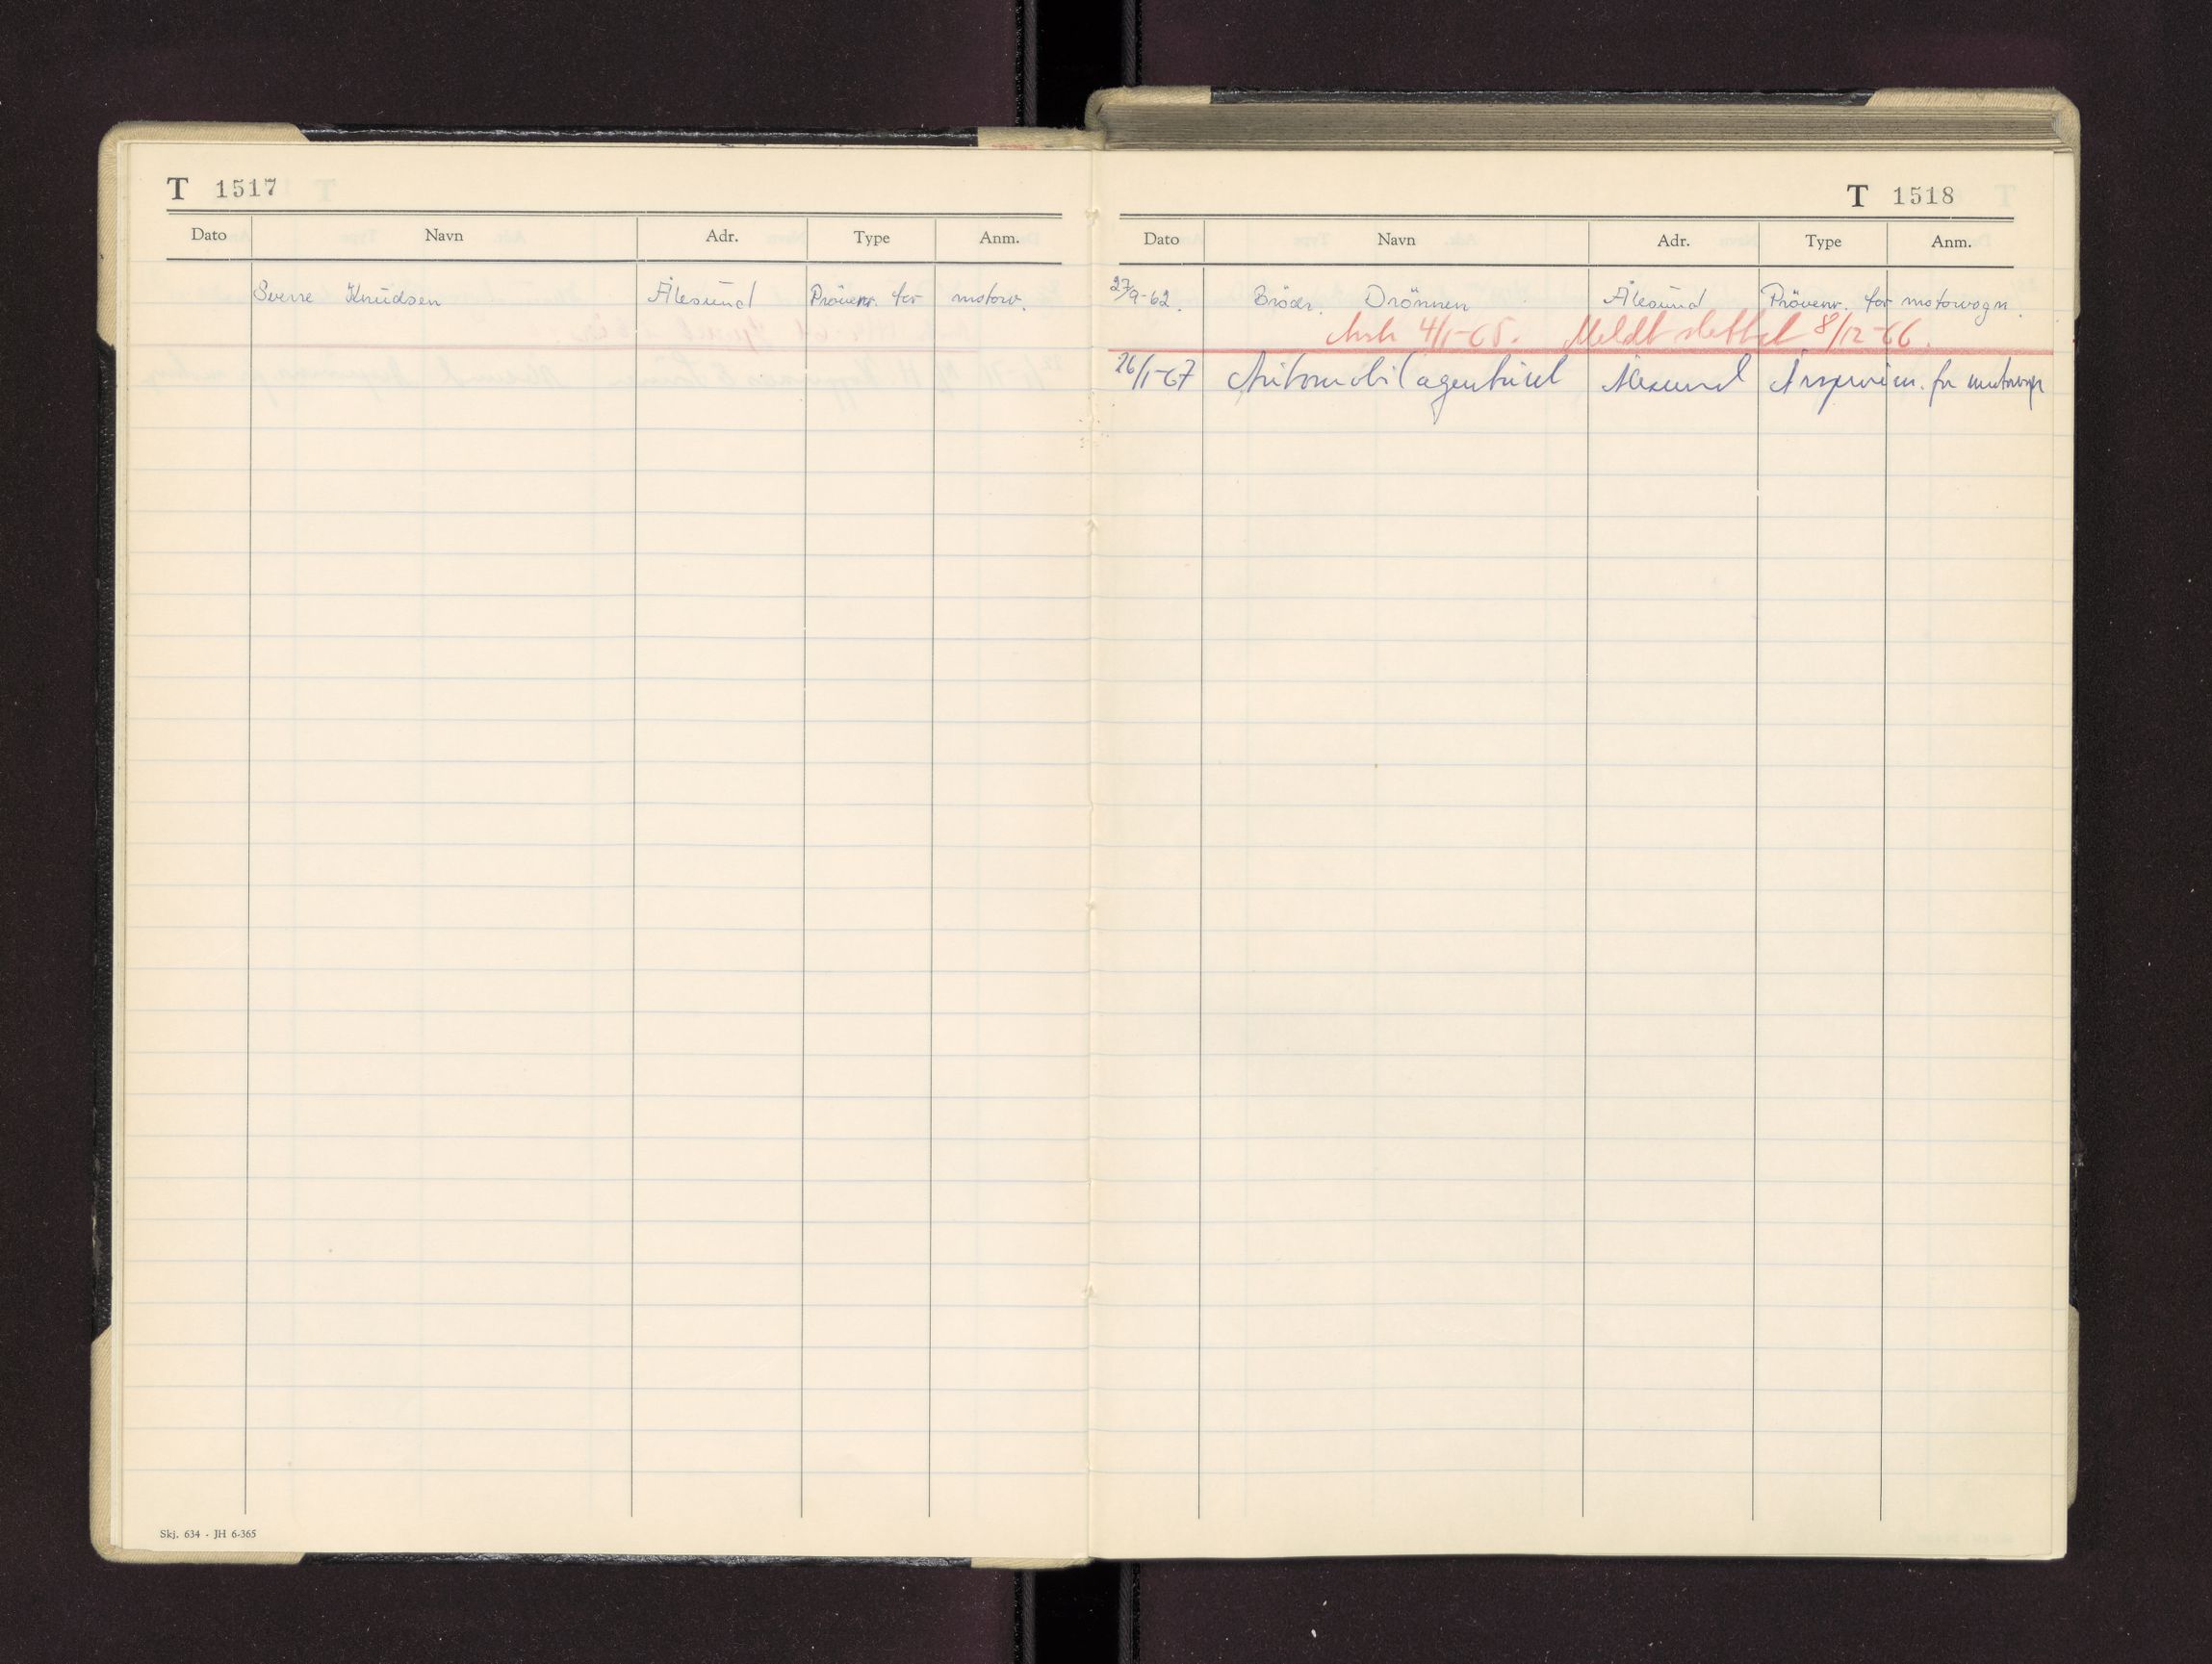 T 1517
Dato Navn Adr. Type Anm.
Sverre Knudsen Ålesund Prövenr. for motorv.
Skj. 634 - JH 6-365
T 1518
Dato Navn Adr. Type Anm.
27/9-62. Brödr. Drönnen Ålesund Prövenr. for motorvogn.
4/1-65. Meldt slettet 8/12-66.
26/1-67 Automobilagenturet Ålesund for motorvogn